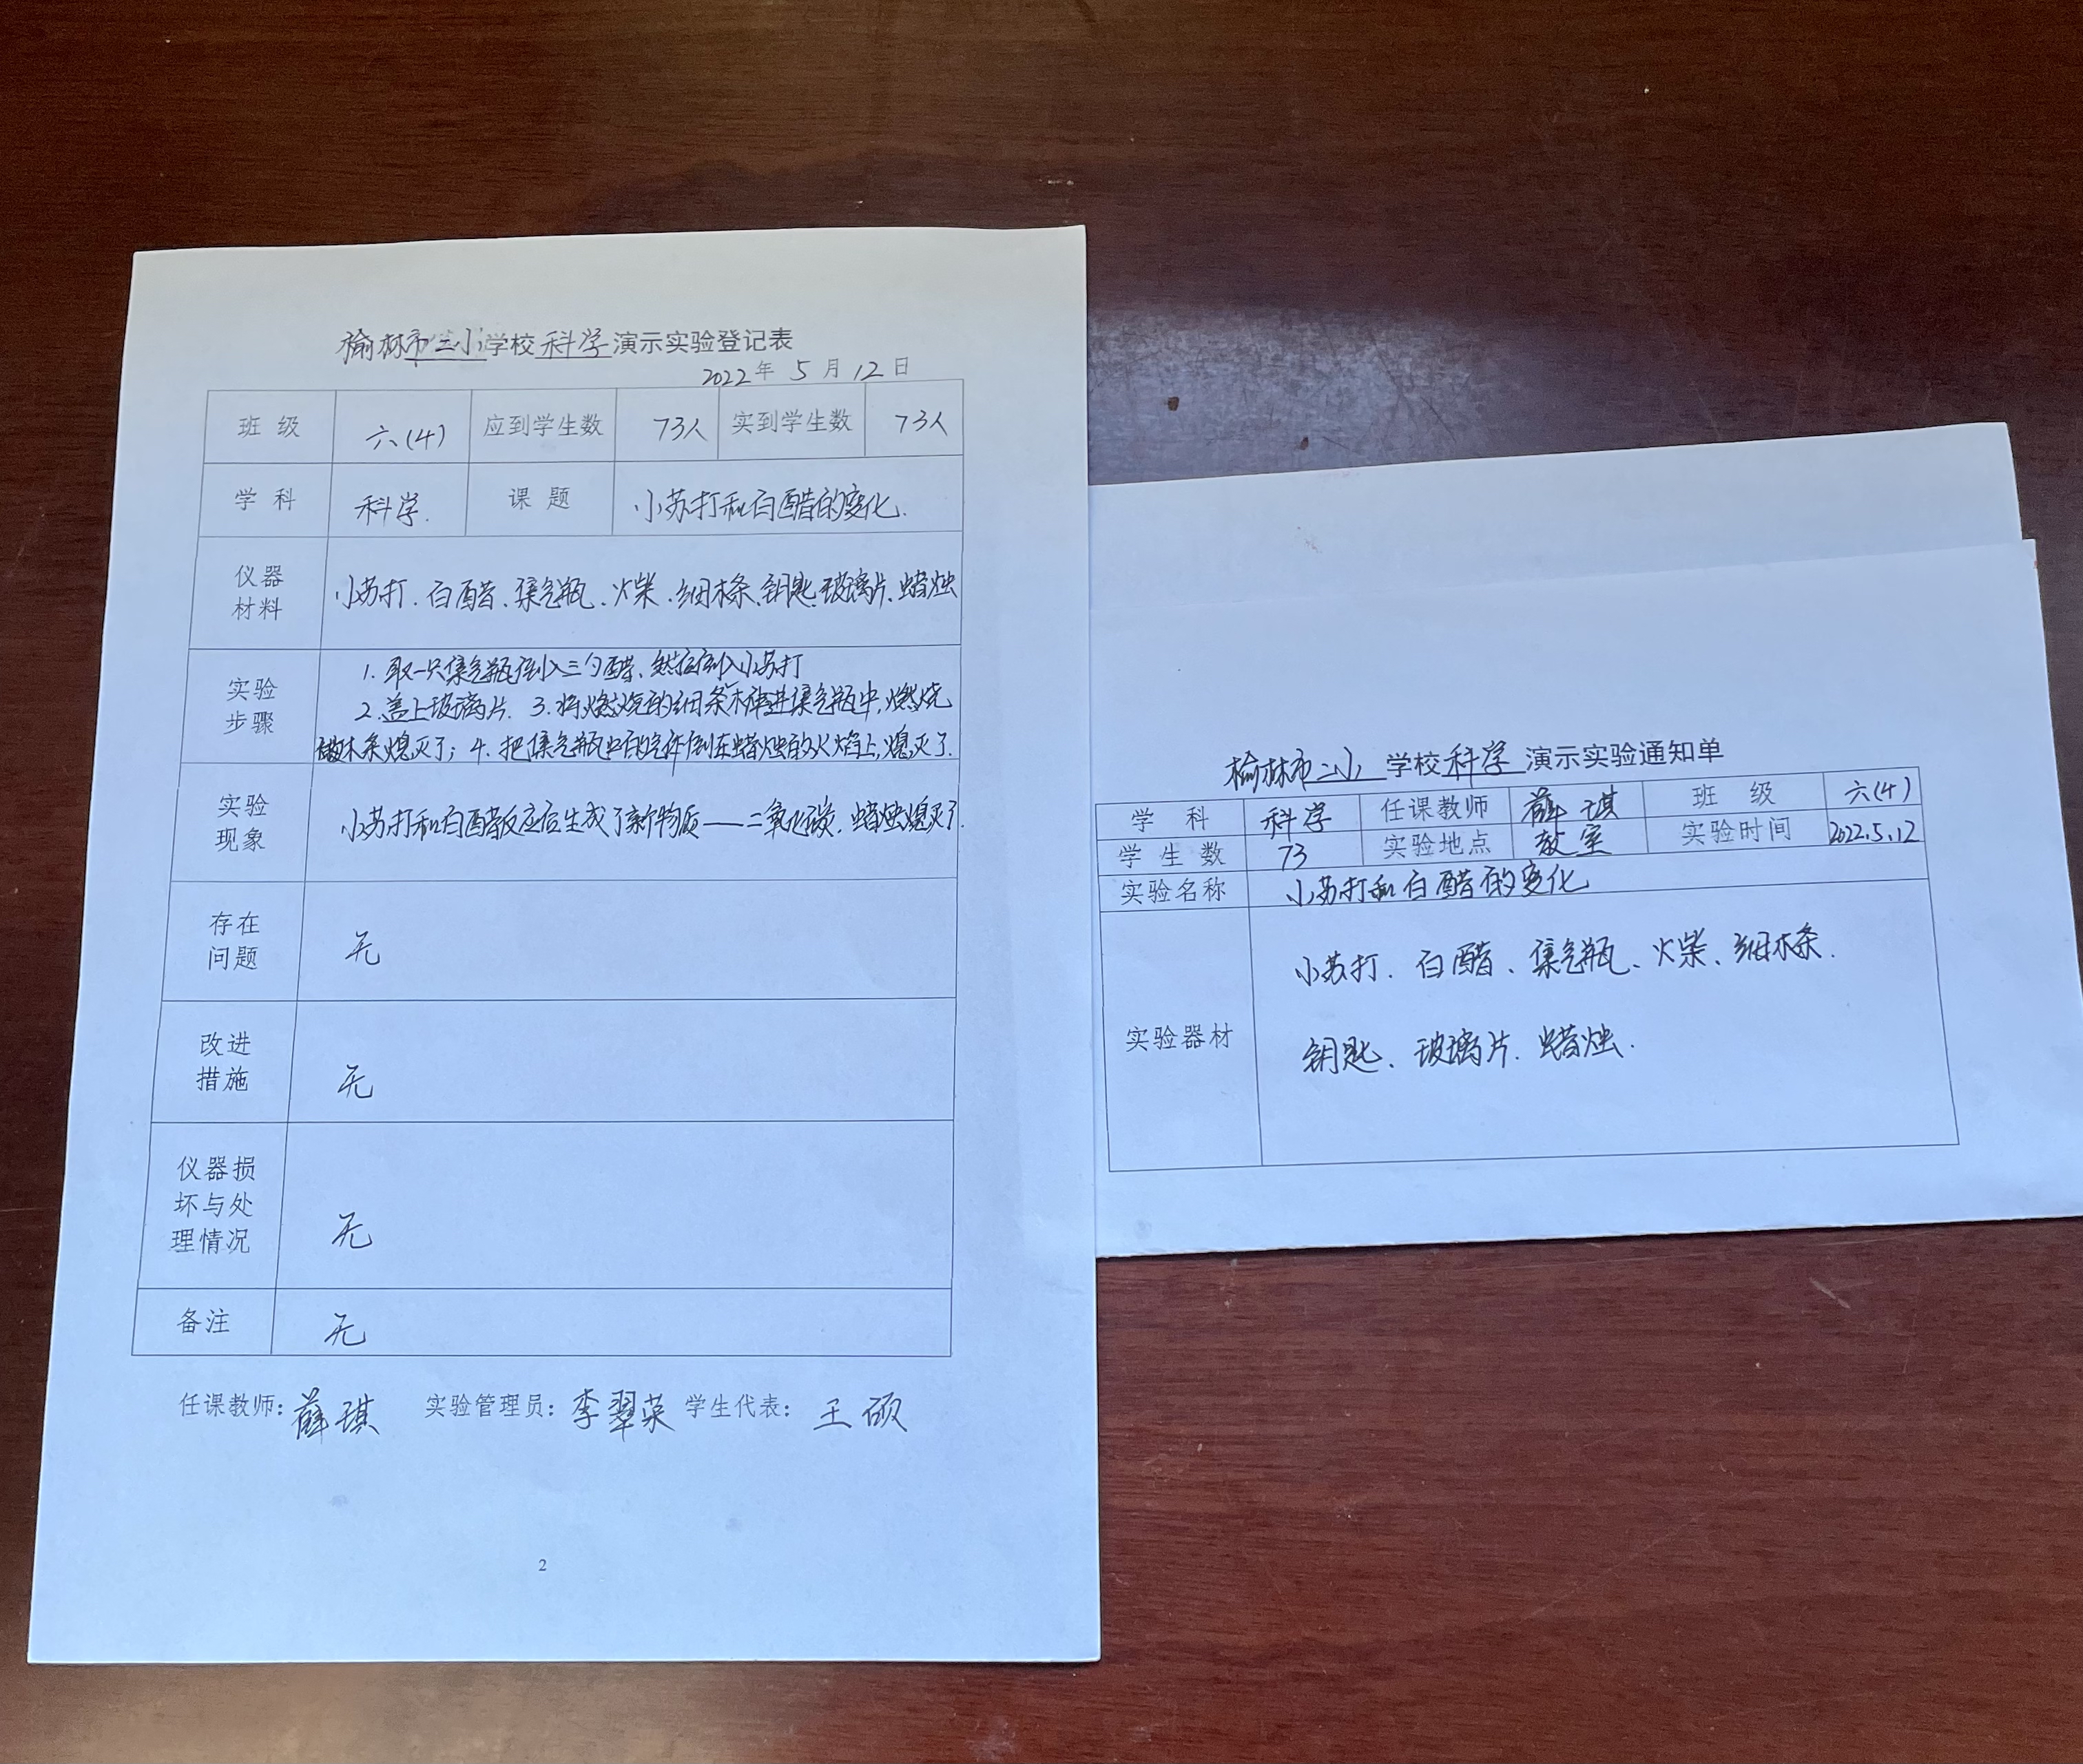 榆林市二小学校科学演示实验登记表
2022年 5 月 12 日
班 级 六(4) 应到学生数 73人 实到学生数 73人
学 科 科学. 课 题 小苏打和白醋的变化.
仪器
材料
小苏打、白醋、集气瓶、火柴、细木条、钥匙、玻璃片、蜡烛
实验
步骤
1. 取一只集气瓶倒入三勺醋、然后倒入小苏打
2.盖上玻璃片. 3.将燃烧的细条木伸进集气瓶中,燃烧
木条熄灭了; 4. 把集气瓶中的气体倒在蜡烛的火焰上,熄灭了.
实验
现象
小苏打和白醋反应后生成了新物质——二氧化碳,蜡烛熄灭了.
存在
问题
无
改进
措施
无
仪器损
坏与处
理情况
无
备注 无
任课教师:薛琪 实验管理员:李翠英 学生代表:王硕
2
榆林市二小 学校科学演示实验通知单
学 科 科学 任课教师 薛琪 班 级 六(4)
学 生 数 73 实验地点 教室 实验时间 2022.5.12
实验名称 小苏打和白醋的变化
实验器材
小苏打、白醋、集气瓶、火柴、细木条.
钥匙、玻璃片、蜡烛.